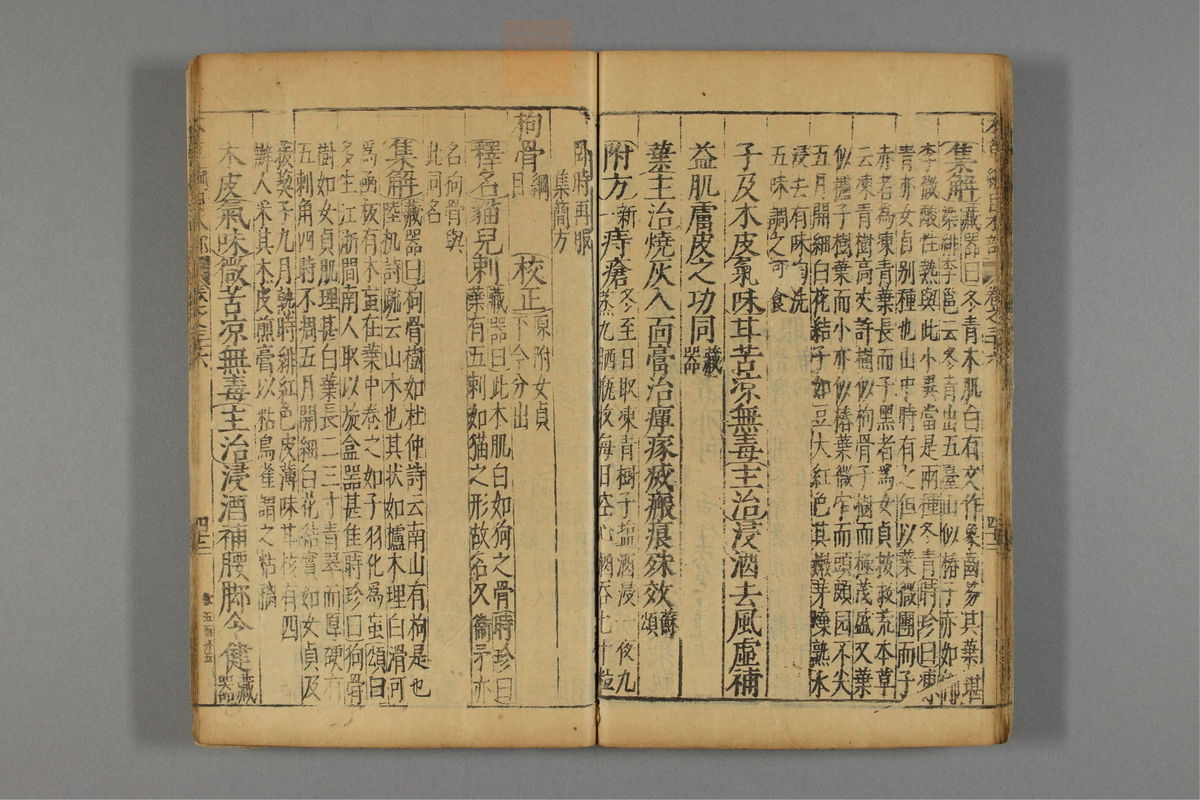 集解藏器曰冬青木肌白有文作象齒笏其葉堪
染緋李邕云冬青出五臺山似椿子赤如郁
李微酸性熱與此小異當是兩種冬青時珍曰凍
青亦女貞別種也山中時有之但以葉微團而子
赤者為凍青葉長而子黑者為女貞按救荒本草
云凍青樹高丈許樹似枸骨子樹而極茂盛又葉
似櫨子樹葉而小亦似椿葉微窄而頭頗圓不尖
五月開細白花結子如豆大紅色其嫩芽煠熟水
浸去苦味淘洗
五味調之可食
子及木皮氣味甘苦涼無毒主治浸酒去風虛補
益肌膚皮之功同藏器
葉主治燒灰入面膏治癉瘃滅瘢痕殊效蘇頌
附方新一痔瘡冬至日取凍青樹子鹽酒浸一夜九
蒸九晒瓶收每日空心酒吞七十粒
臥時再服
集簡方
枸骨綱目校正原附女貞
下今分出
釋名貓兒刺藏器曰此木肌白如狗之骨時珍曰
葉有五刺如猫之形故名又衛矛亦
名枸骨與
此同名
集解藏器曰枸骨樹如杜仲詩云南山有枸是也
陸机詩疏云山木也其状如櫨木理白滑可
為函板有木䖟在葉中卷之如子羽化為䖟頌曰
多生江浙間南人取以旋盒器甚佳時珍曰狗骨
樹如女貞肌理甚白葉長二三寸青翠而厚硬有
五刺角四時不凋五月開細白花結實如女貞及
菝葜子九月熟時緋紅色皮薄味甘核有四
瓣人采其木皮煎膏以粘鳥雀謂之粘䵴
木皮氣味微苦涼無毒主治浸酒補腰脚令健藏器